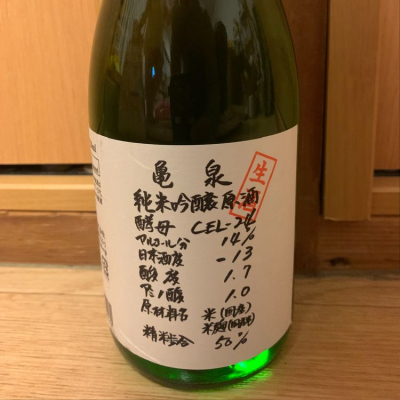 亀泉
生酒
純米吟醸原酒
酵母 CEL-24
アルコール分 14%
日本酒度 -13
酸度 1.7
アミノ酸 1.0
原材料名 米(国産)
米麹(国産米)
精米歩合 50%